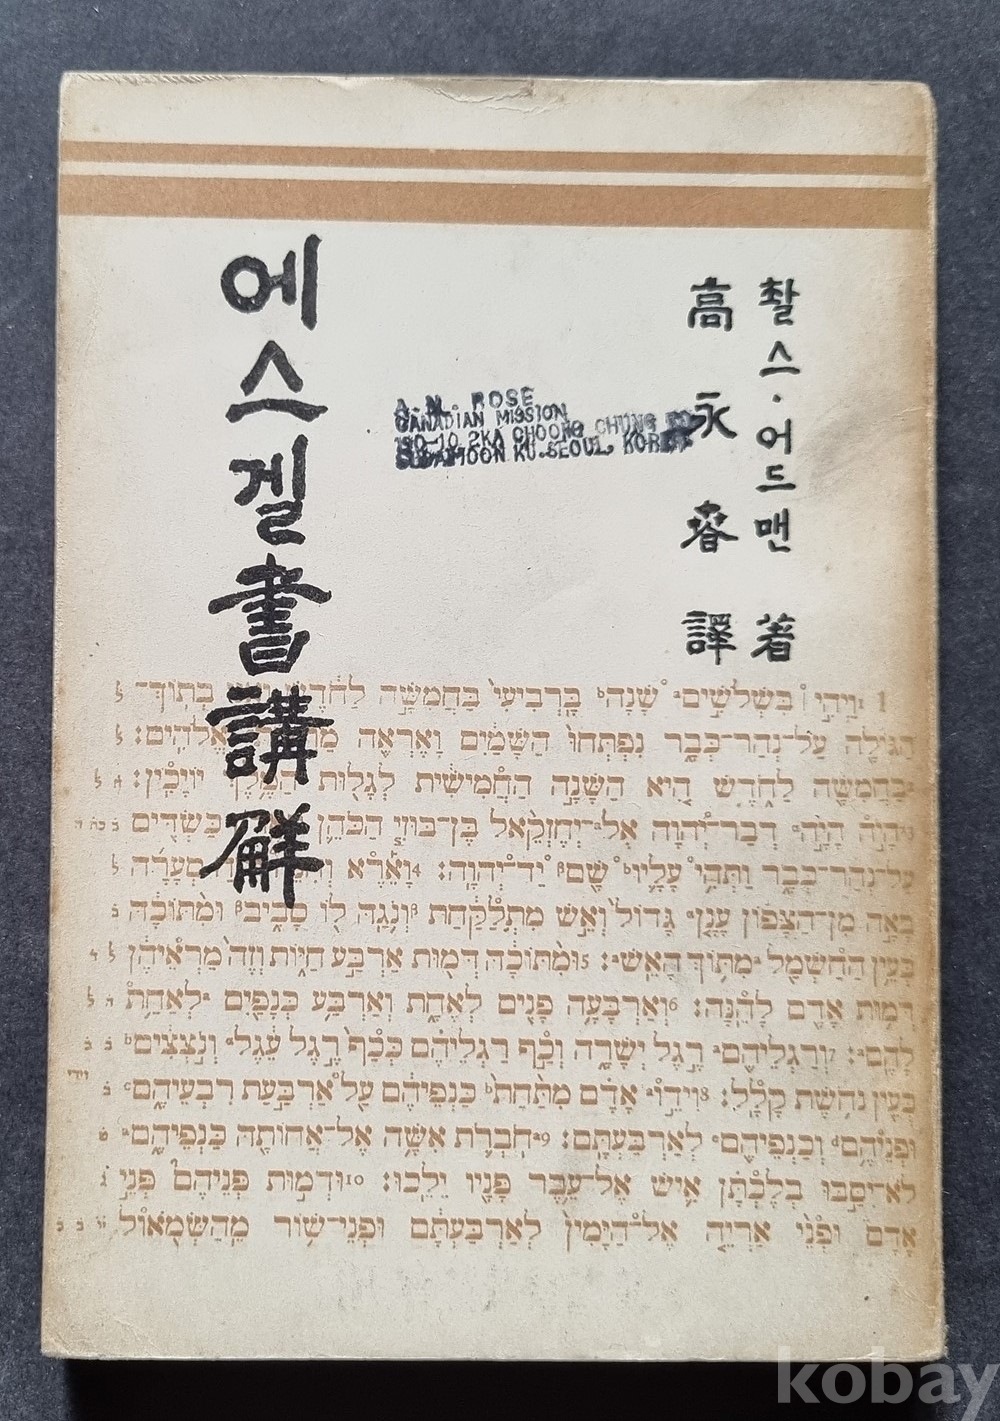 찰스·어드맨 著
高永春 譯
에스겔書講解
A. M. ROSE
CANADIAN MISSION
190-10 2KA CHOONG CHUNG
SUDAIMOON KU. SEOUL, KOREA
1 וַיְהִ֣י בִּשְׁלֹשִׁ֣ים שָׁנָ֗ה בָּֽרְבִיעִי֙ בַּחֲמִשָּׁ֣ה לַחֹ֔דֶשׁ בְתֽוֹךְ־
הַגּוֹלָ֖ה עַל־נְהַר־כְּבָ֑ר נִפְתְּחוּ֙ הַשָּׁמַ֔יִם וָאֶרְאֶ֖ה אֱלֹהִֽים׃
בַּחֲמִשָּׁ֖ה לַחֹ֑דֶשׁ הִ֚יא הַשָּׁנָ֣ה הַחֲמִישִׁ֔ית לְגָל֖וּת הַמֶּ֥לֶךְ יוֹיָכִֽין׃
3 הָיֹ֣ה הָיָ֣ה דְבַר־יְ֠הוָה אֶל־יְחֶזְקֵ֨אל בֶּן־בּוּזִ֧י הַכֹּהֵ֛ן כַּשְׂדִּ֖ים
עַל־נְהַר־כְּבָ֑ר וַתְּהִ֥י עָלָ֛יו שָׁ֖ם יַד־יְהוָֽה׃ 4 וָאֵ֡רֶא סְעָרָה֩
בָּאָ֣ה מִן־הַצָּפ֗וֹן עָנָ֤ן גָּדוֹל֙ וְאֵ֣שׁ מִתְלַקַּ֔חַת וְנֹ֥גַֽהּ ל֖וֹ סָבִ֑יב וּמִ֨תּוֹכָ֔הּ
כְּעֵ֥ין הַחַשְׁמַ֖ל מִתּ֥וֹךְ הָאֵֽשׁ׃ 5 וּמִ֨תּוֹכָ֔הּ דְּמ֖וּת אַרְבַּ֣ע חַיּ֑וֹת וְזֶה֙ מַרְאֵֽיהֶ֔ן
דְּמ֥וּת אָדָ֖ם לָהֵֽנָּה׃ 6 וְאַרְבָּעָ֥ה פָנִ֖ים לְאֶחָ֑ת וְאַרְבַּ֥ע כְּנָפַ֖יִם לְאַחַ֥ת
לָהֶֽם׃ 7 וְרַגְלֵיהֶ֖ם רֶ֣גֶל יְשָׁרָ֑ה וְכַ֣ף רַגְלֵיהֶ֗ם כְּכַף֙ רֶ֣גֶל עֵ֔גֶל וְנֹ֣צְצִ֔ים
כְּעֵ֖ין נְחֹ֥שֶׁת קָלָֽל׃ 8 וִידֵ֣י אָדָ֗ם מִתַּ֙חַת֙ כַּנְפֵיהֶ֔ם עַ֖ל אַרְבַּ֣עַת רִבְעֵיהֶ֑ם
וּפְנֵיהֶ֥ם וְכַנְפֵיהֶ֖ם לְאַרְבַּעְתָּֽם׃ 9 חֹֽבְרֹ֛ת אִשָּׁ֥ה אֶל־אֲחוֹתָ֖הּ כַּנְפֵיהֶ֑ם
לֹא־יִסַּ֣בּוּ בְלֶכְתָּ֔ן אִ֛ישׁ אֶל־עֵ֥בֶר פָּנָ֖יו יֵלֵֽכוּ׃ 10 וּדְמ֣וּת פְּנֵיהֶם֮ פְּנֵ֣י
אָדָם֒ וּפְנֵ֨י אַרְיֵ֤ה אֶל־הַיָּמִין֙ לְאַרְבַּעְתָּ֔ם וּפְנֵי־שׁ֥וֹר מֵֽהַשְּׂמֹ֖אול
kobay